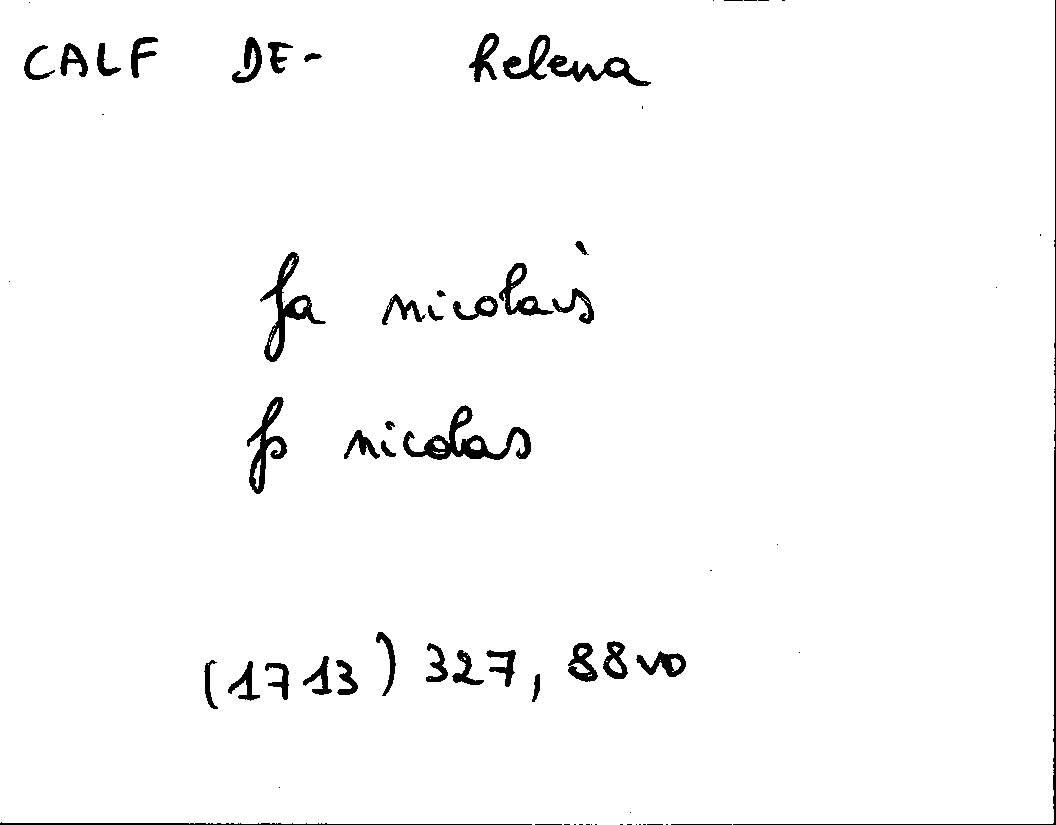 CALF DE- helena
fa nicolais
fs nicolas
(1713) 327, 88vo